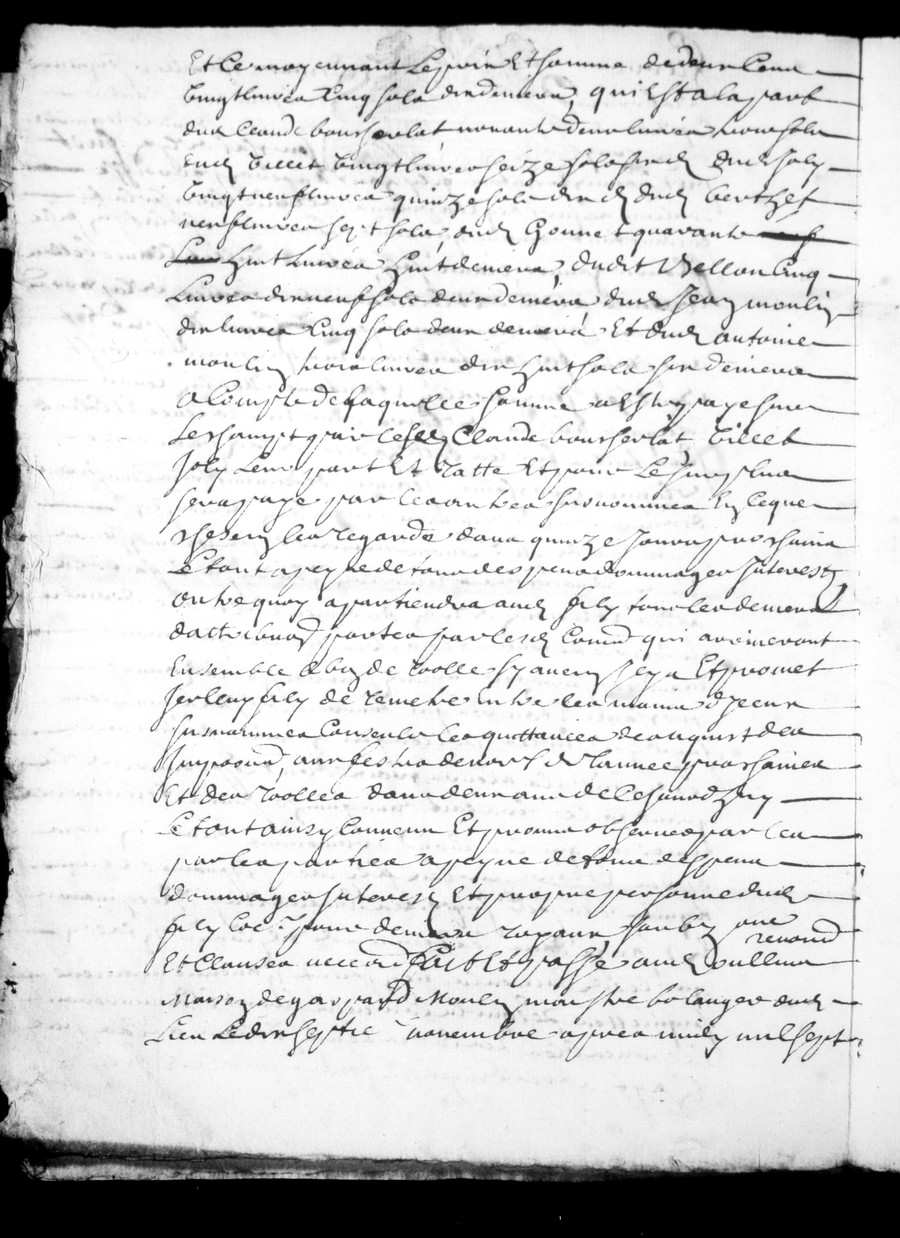 Et Ce moyennant Le prix Et somme de deux Cent
Vingt livres Cinq sols dix deniers qui Est a la part
dud Claude bourserlat nonante deux livres trois sols
dud billet Vingt livres seize sols six d dud Joly
Vingt neuf livres quinze sols dix d dud bertzet
neuf livres sept sols dud Gonnet quarante
huit Livres huit deniers dudit Vellon Cinq
Livres dix neuf sols deux deniers dud Jean moulin
dix livres Cinq sols deux deniers Et dud antoine
moulin trois livres dix huit sols six deniers
a Compte de laquelle somme a Esté payé sur
Le champt par lesd Claude bourserlat billet
Joly Leur part Et ratte Et pour Le surplus
sera payé par les autres susnommes En ce que
les regarde dans quinze Jours prochains
Le tout a peyne de tous despens dommages Interests
outre quoy apartiendra aud fily tous les deniers
par lesd qui arriveront
Ensemble de rolle Et promet
fily de remetre entre les mains d'yceux
susnommes Consuls les quittances d'acquist des
aux festes de noel de L'annee prochaine
Et des rolles dans deux ans de Ce Jourdhuy
Le tout ainsy Convenu Et promis observer par les
par les parties a peyne de tous despens
dommages Interests Et propre personne dud
fily pour deniers royaux soub
renond
Et Clauses necess fait Et passé aud oullins
Maison de gaspard Moulin maistre bolanger dud
Lieu Le dix septie novembre apres midy mil sept